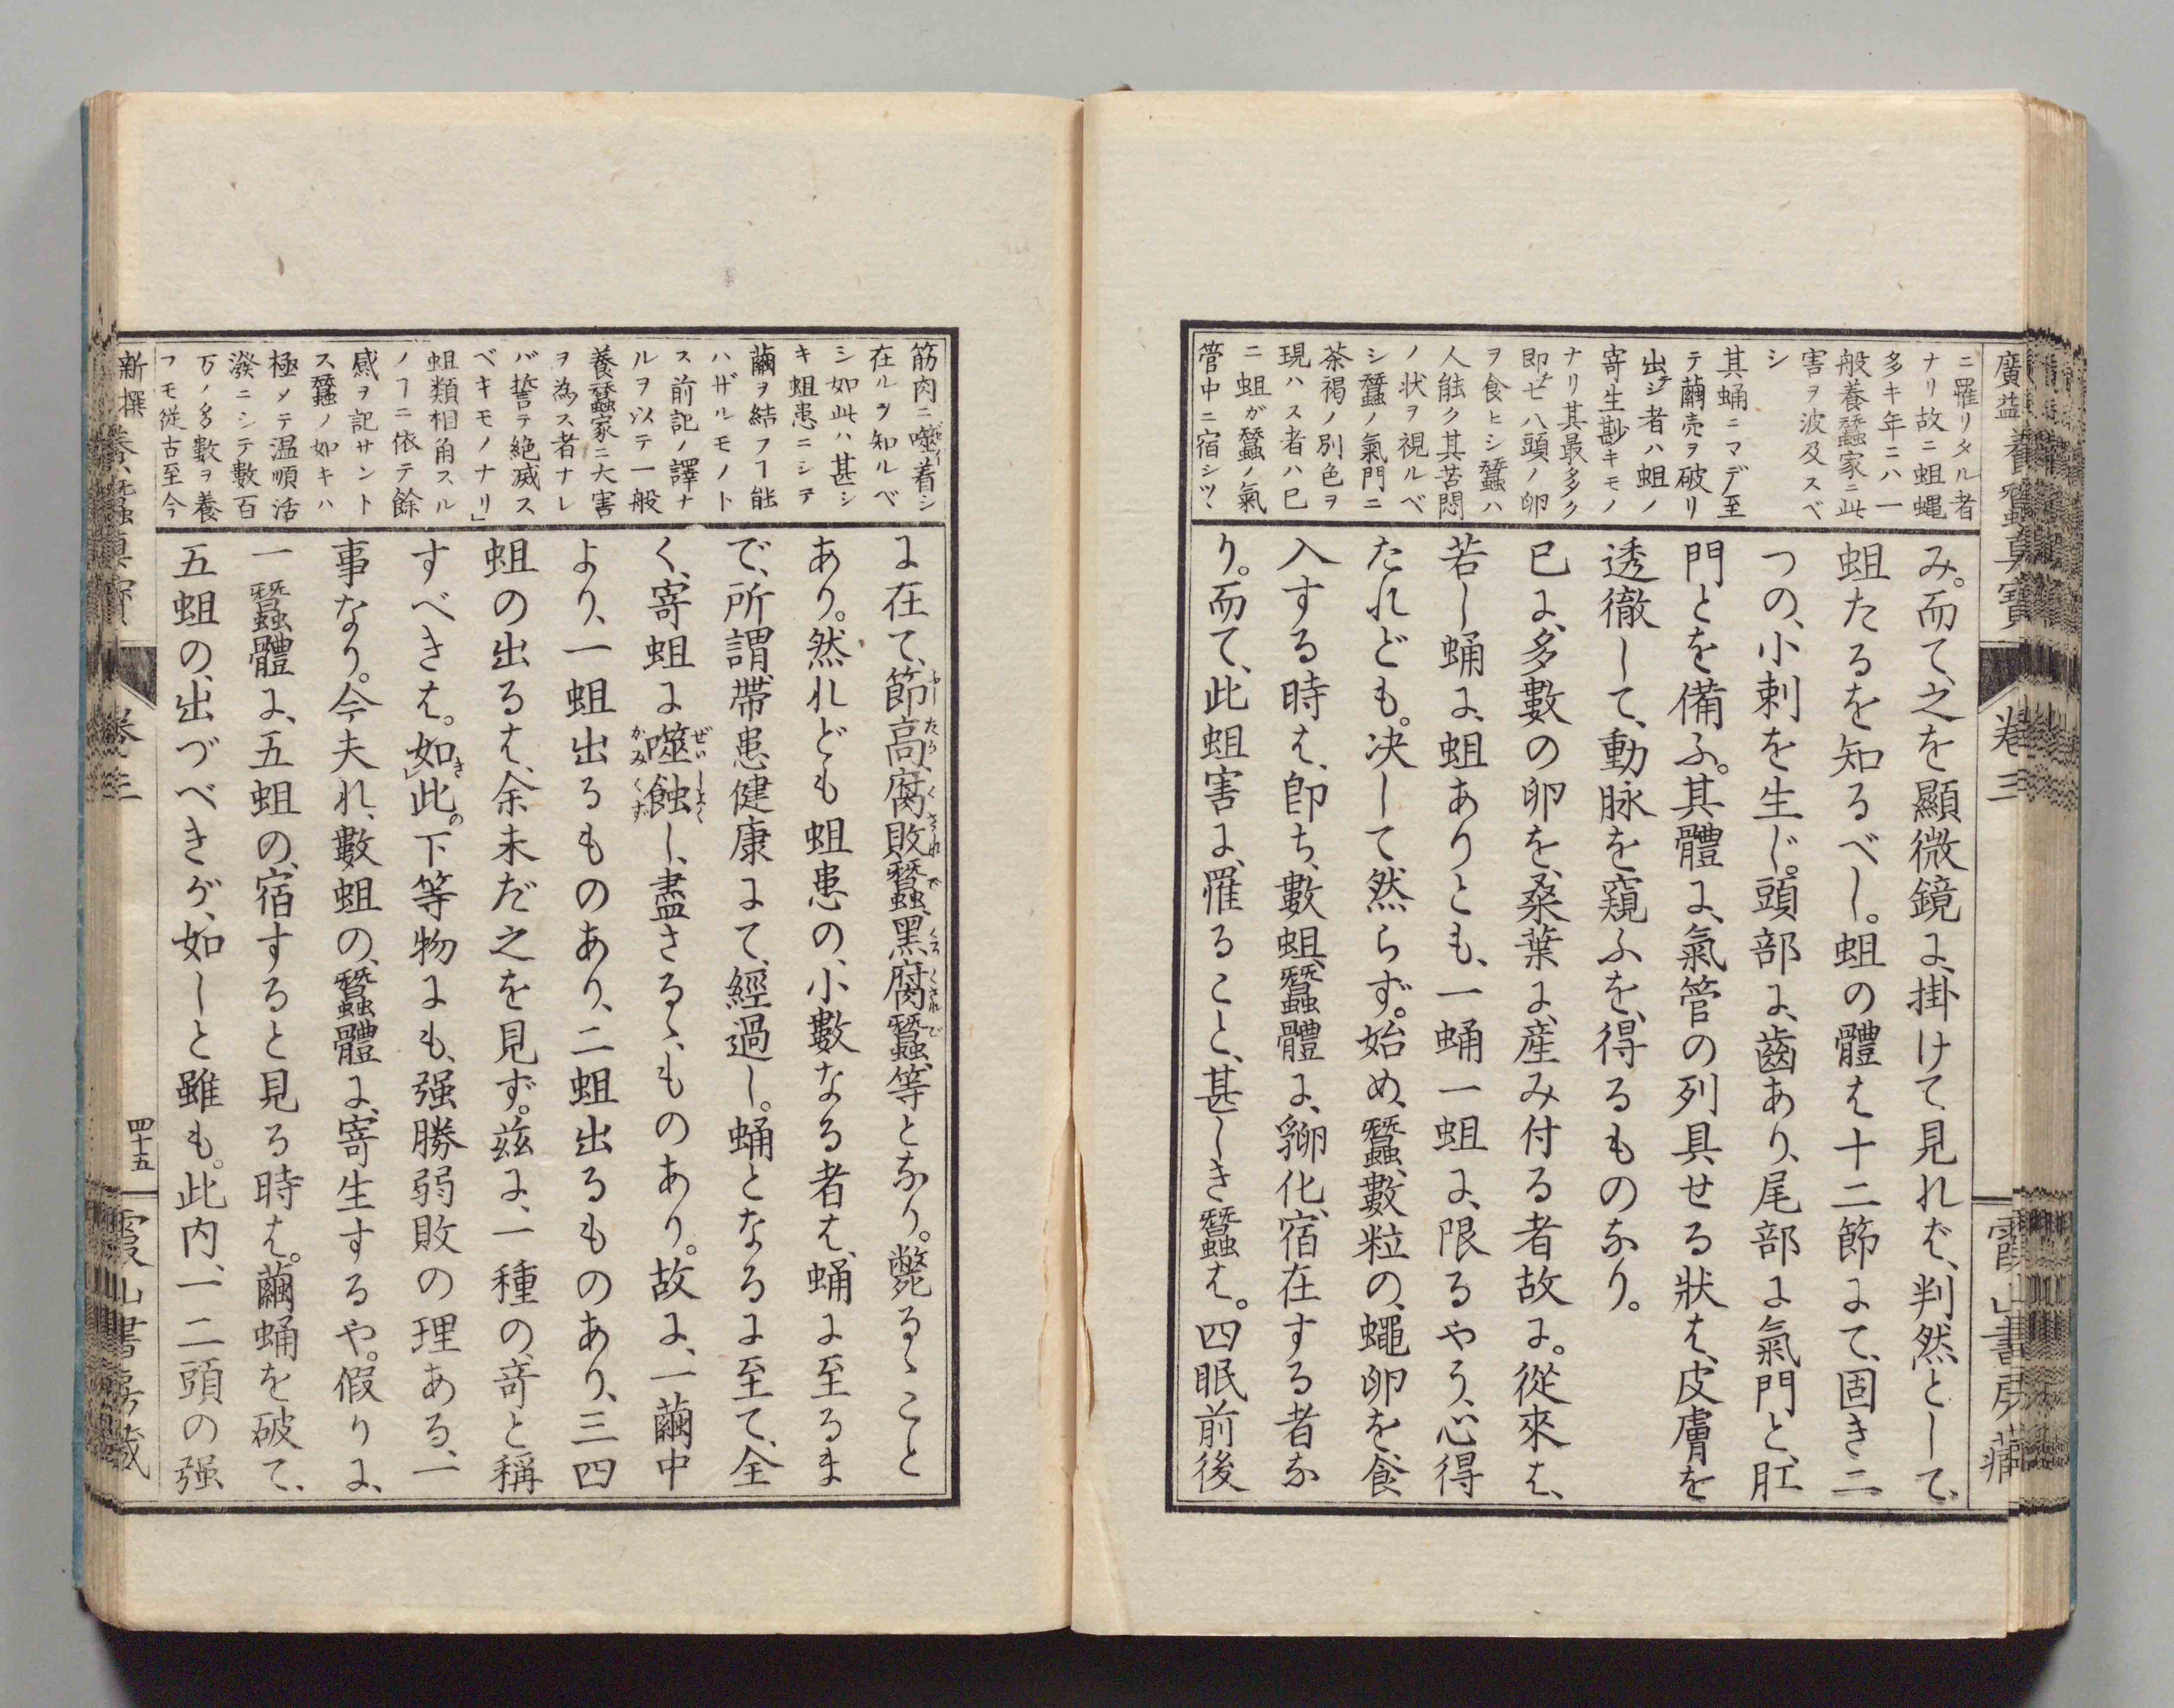 廣益養蠶真寶 卷三
ニ罹リタル者
ナリ故ニ蛆蝿
多キ年ニハ一
般養蠶家ニ此
害ヲ波及スベ
シ
其蛹ニマデ至
テ繭壳ヲ破リ
出シ者ハ蛆ノ
寄生尠キモノ
ナリ其最多ク
即七八頭ノ卵
ヲ食ヒシ蠶ハ
人能ク其苦悶
ノ状ヲ視ルベ
シ蠶ノ氣門ニ
茶褐ノ別色ヲ
現ハス者ハ已
ニ蛆ガ蠶ノ氣
管中ニ宿シツヽ
み。而て、之を顯微鏡に、掛けて、見れば、判然として、
蛆たるを知るべし。蛆の體は十二節にて、固き二
つの、小刺を生じ。頭部に、齒あり、尾部に氣門と、肛
門とを備ふ。其體に、氣管の列具せる狀は、皮膚を
透徹して、動脉を窺ふを、得るものなり。
已に、多數の卵を、桑葉に、産み付る者故に。從來は、
若し蛹に、蛆ありとも、一蛹一蛆に、限るやう、心得
たれども。决して然らず。始め、蠶、數粒の、蠅卵を、食
入する時は、即ち、數蛆、蠶體に、孵化、宿在する者な
り。而て、此蛆害に、罹ること、甚しき蠶は。四眠前後
筋肉ニ噬着シ
在ルヲ知ルベ
シ如此ハ甚シ
キ蛆患ニシテ
繭ヲ結フヿ能
ハザルモノト
ス前記ノ譯ナ
ルヲ以テ一般
養蠶家ニ大害
ヲ為ス者ナレ
バ誓テ絶滅ス
ベキモノナリ」
蛆類相角スル
ノヿニ依テ餘
感ヲ記サント
ス蠶ノ如キハ
極メテ温順活
潑ニシテ數百
万ノ多數ヲ養
フモ從古至今
に在て、節高、腐敗蠶、黒腐蠶、等となり。斃るゝこと
あり。然れども蛆患の、小數なる者は、蛹に至るま
で、所謂、帶患健康にて、經過し。蛹となるに至て、全
く、寄蛆に噬蝕し、盡さるゝものあり。故に、一繭中
より、一蛆出るものあり、二蛆出るものあり、三四
蛆の出るは、余未だ之を見ず。茲に、一種の、奇と稱
すべきは。如此。下等物にも、强勝弱敗の理ある、一
事なり。今夫れ、數蛆の、蠶體に、寄生するや。假りに、
一蠶體に、五蛆の、宿すると見る時は。繭蛹を破て、
五蛆の、出づべきが、如しと雖も。此内、一二頭の强
新撰養蠶真寶 卷三 四十五 霞山書房藏